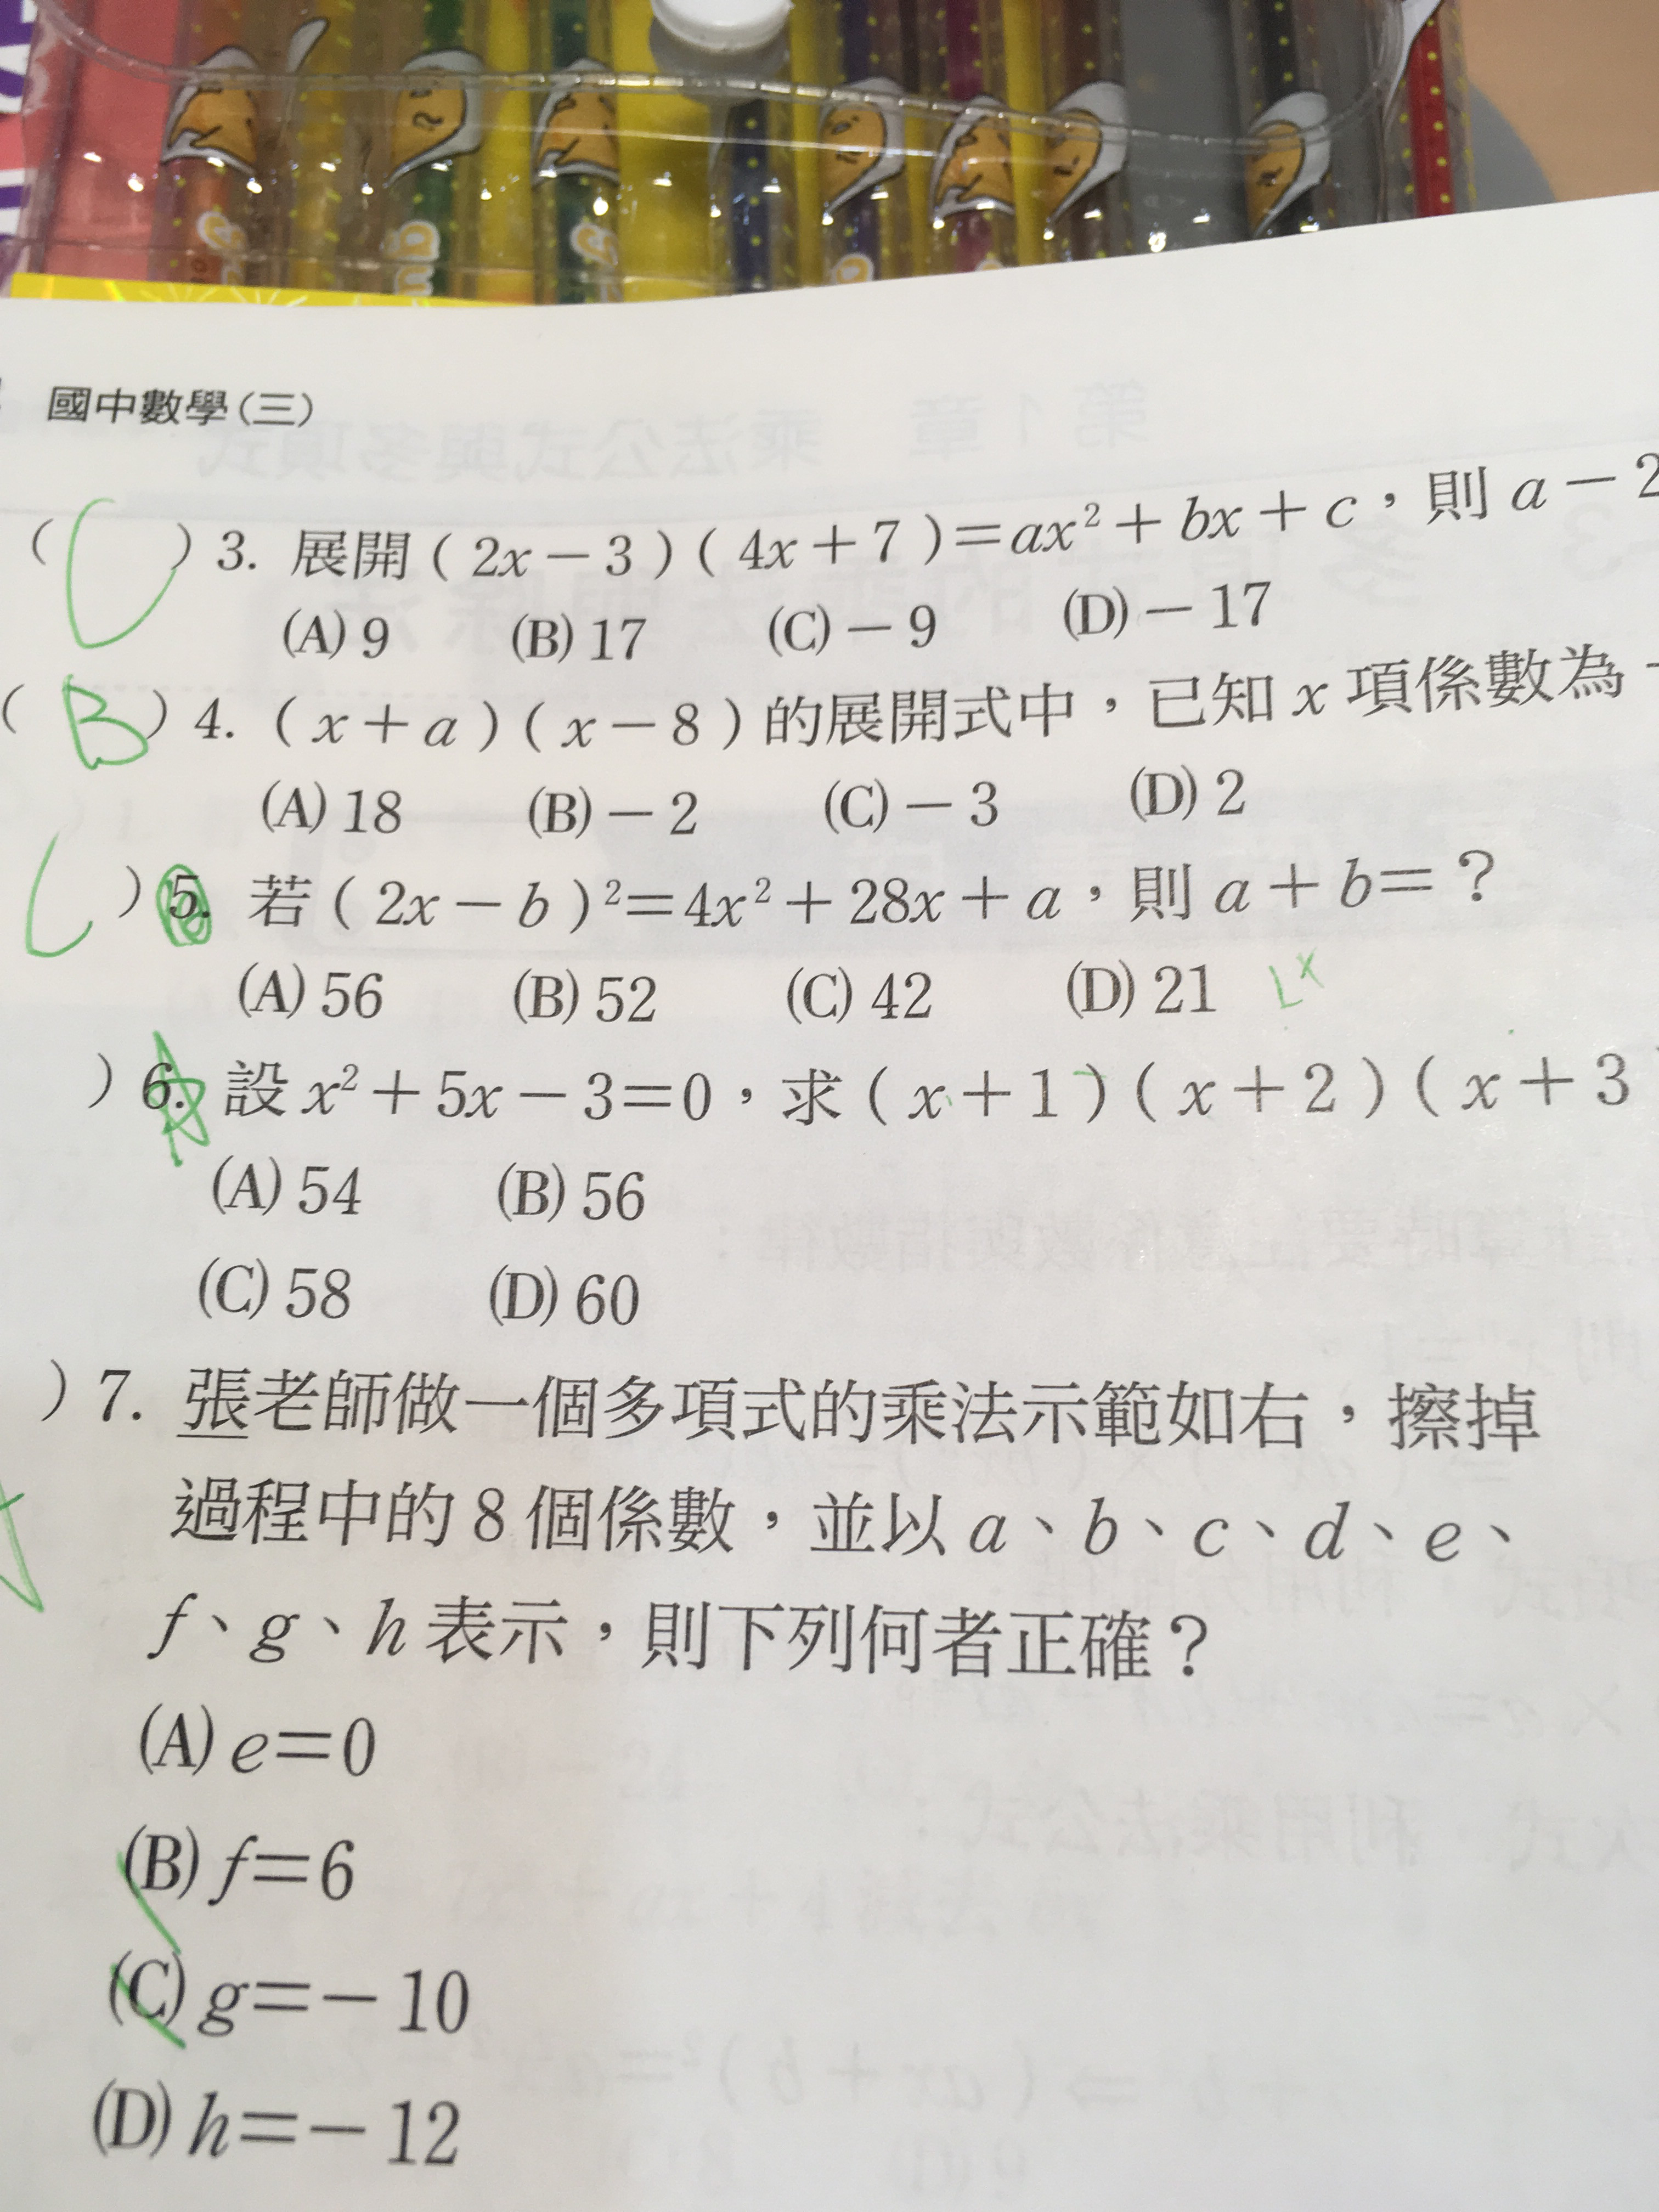 國中數學(三)
( C ) 3. 展開(2x－3)(4x＋7)＝ax²＋bx＋c，則 a－2
(A) 9 (B) 17 (C)－9 (D)－17
( B ) 4. (x＋a)(x－8)的展開式中，已知 x 項係數為
(A) 18 (B)－2 (C)－3 (D) 2
C ) 5. 若(2x－b)²＝4x²＋28x＋a，則 a＋b＝？
(A) 56 (B) 52 (C) 42 (D) 21
) 6. 設 x²＋5x－3＝0，求(x＋1)(x＋2)(x＋3
(A) 54 (B) 56
(C) 58 (D) 60
) 7. 張老師做一個多項式的乘法示範如右，擦掉
過程中的 8 個係數，並以 a、b、c、d、e、
f、g、h 表示，則下列何者正確？
(A) e＝0
(B) f＝6
(C) g＝－10
(D) h＝－12